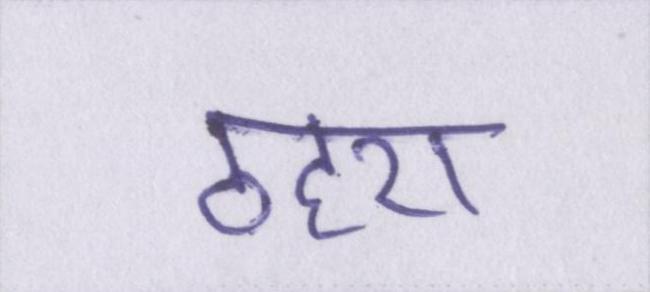 ठहरा